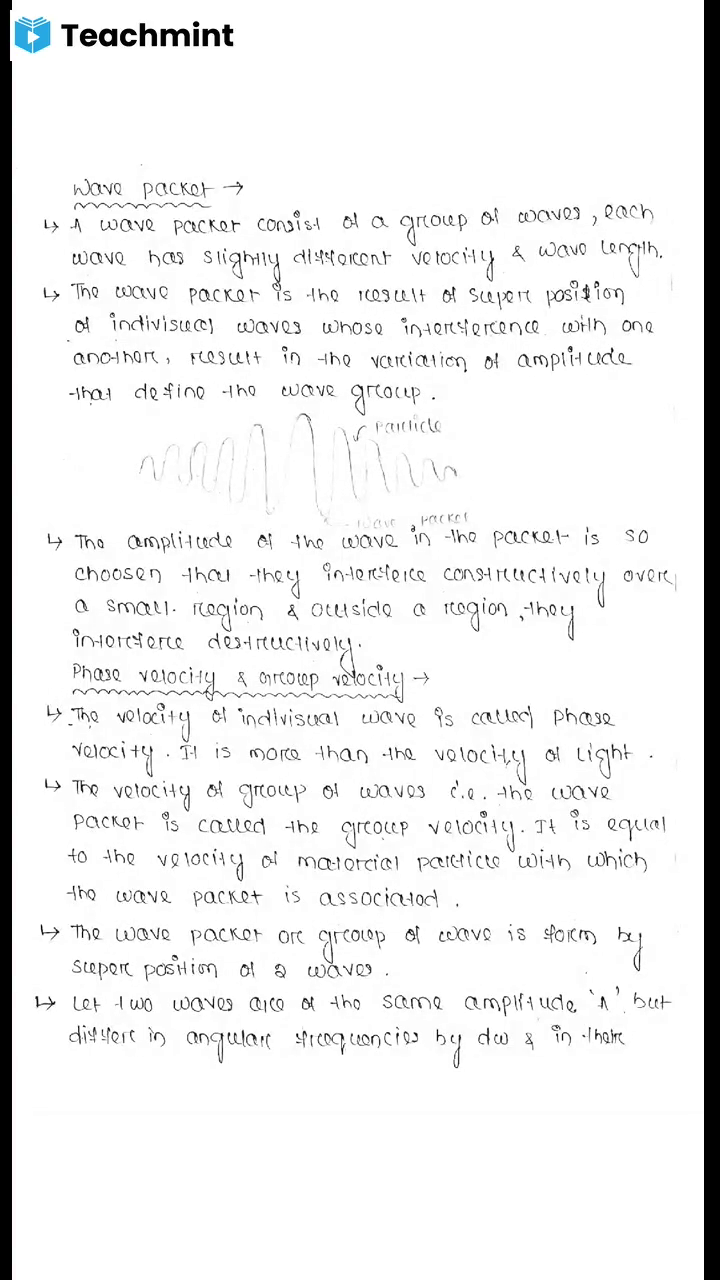 Teachmint
Wave packet →
↳ A wave packet consist of a group of waves, each
wave has slightly different velocity & wave length.
↳ The wave packet is the result of super position
of indivisual waves whose interference with one
another, result in the variation of amplitude
that define the wave group.
particle
wave packet
↳ The amplitude of the wave in the packet is so
choosen that they interfere constructively over
a small region & outside a region, they
interfere destructively.
Phase velocity & Group velocity →
↳ The velocity of indivisual wave is called phase
velocity. It is more than the velocity of light.
↳ The velocity of group of waves i.e. the wave
packet is called the group velocity. It is equal
to the velocity of material particle with which
the wave packet is associated.
↳ The wave packet or group of wave is form by
super position of 2 waves.
↳ Let two waves are of the same amplitude 'A' but
differ in angular frequencies by dω & in their